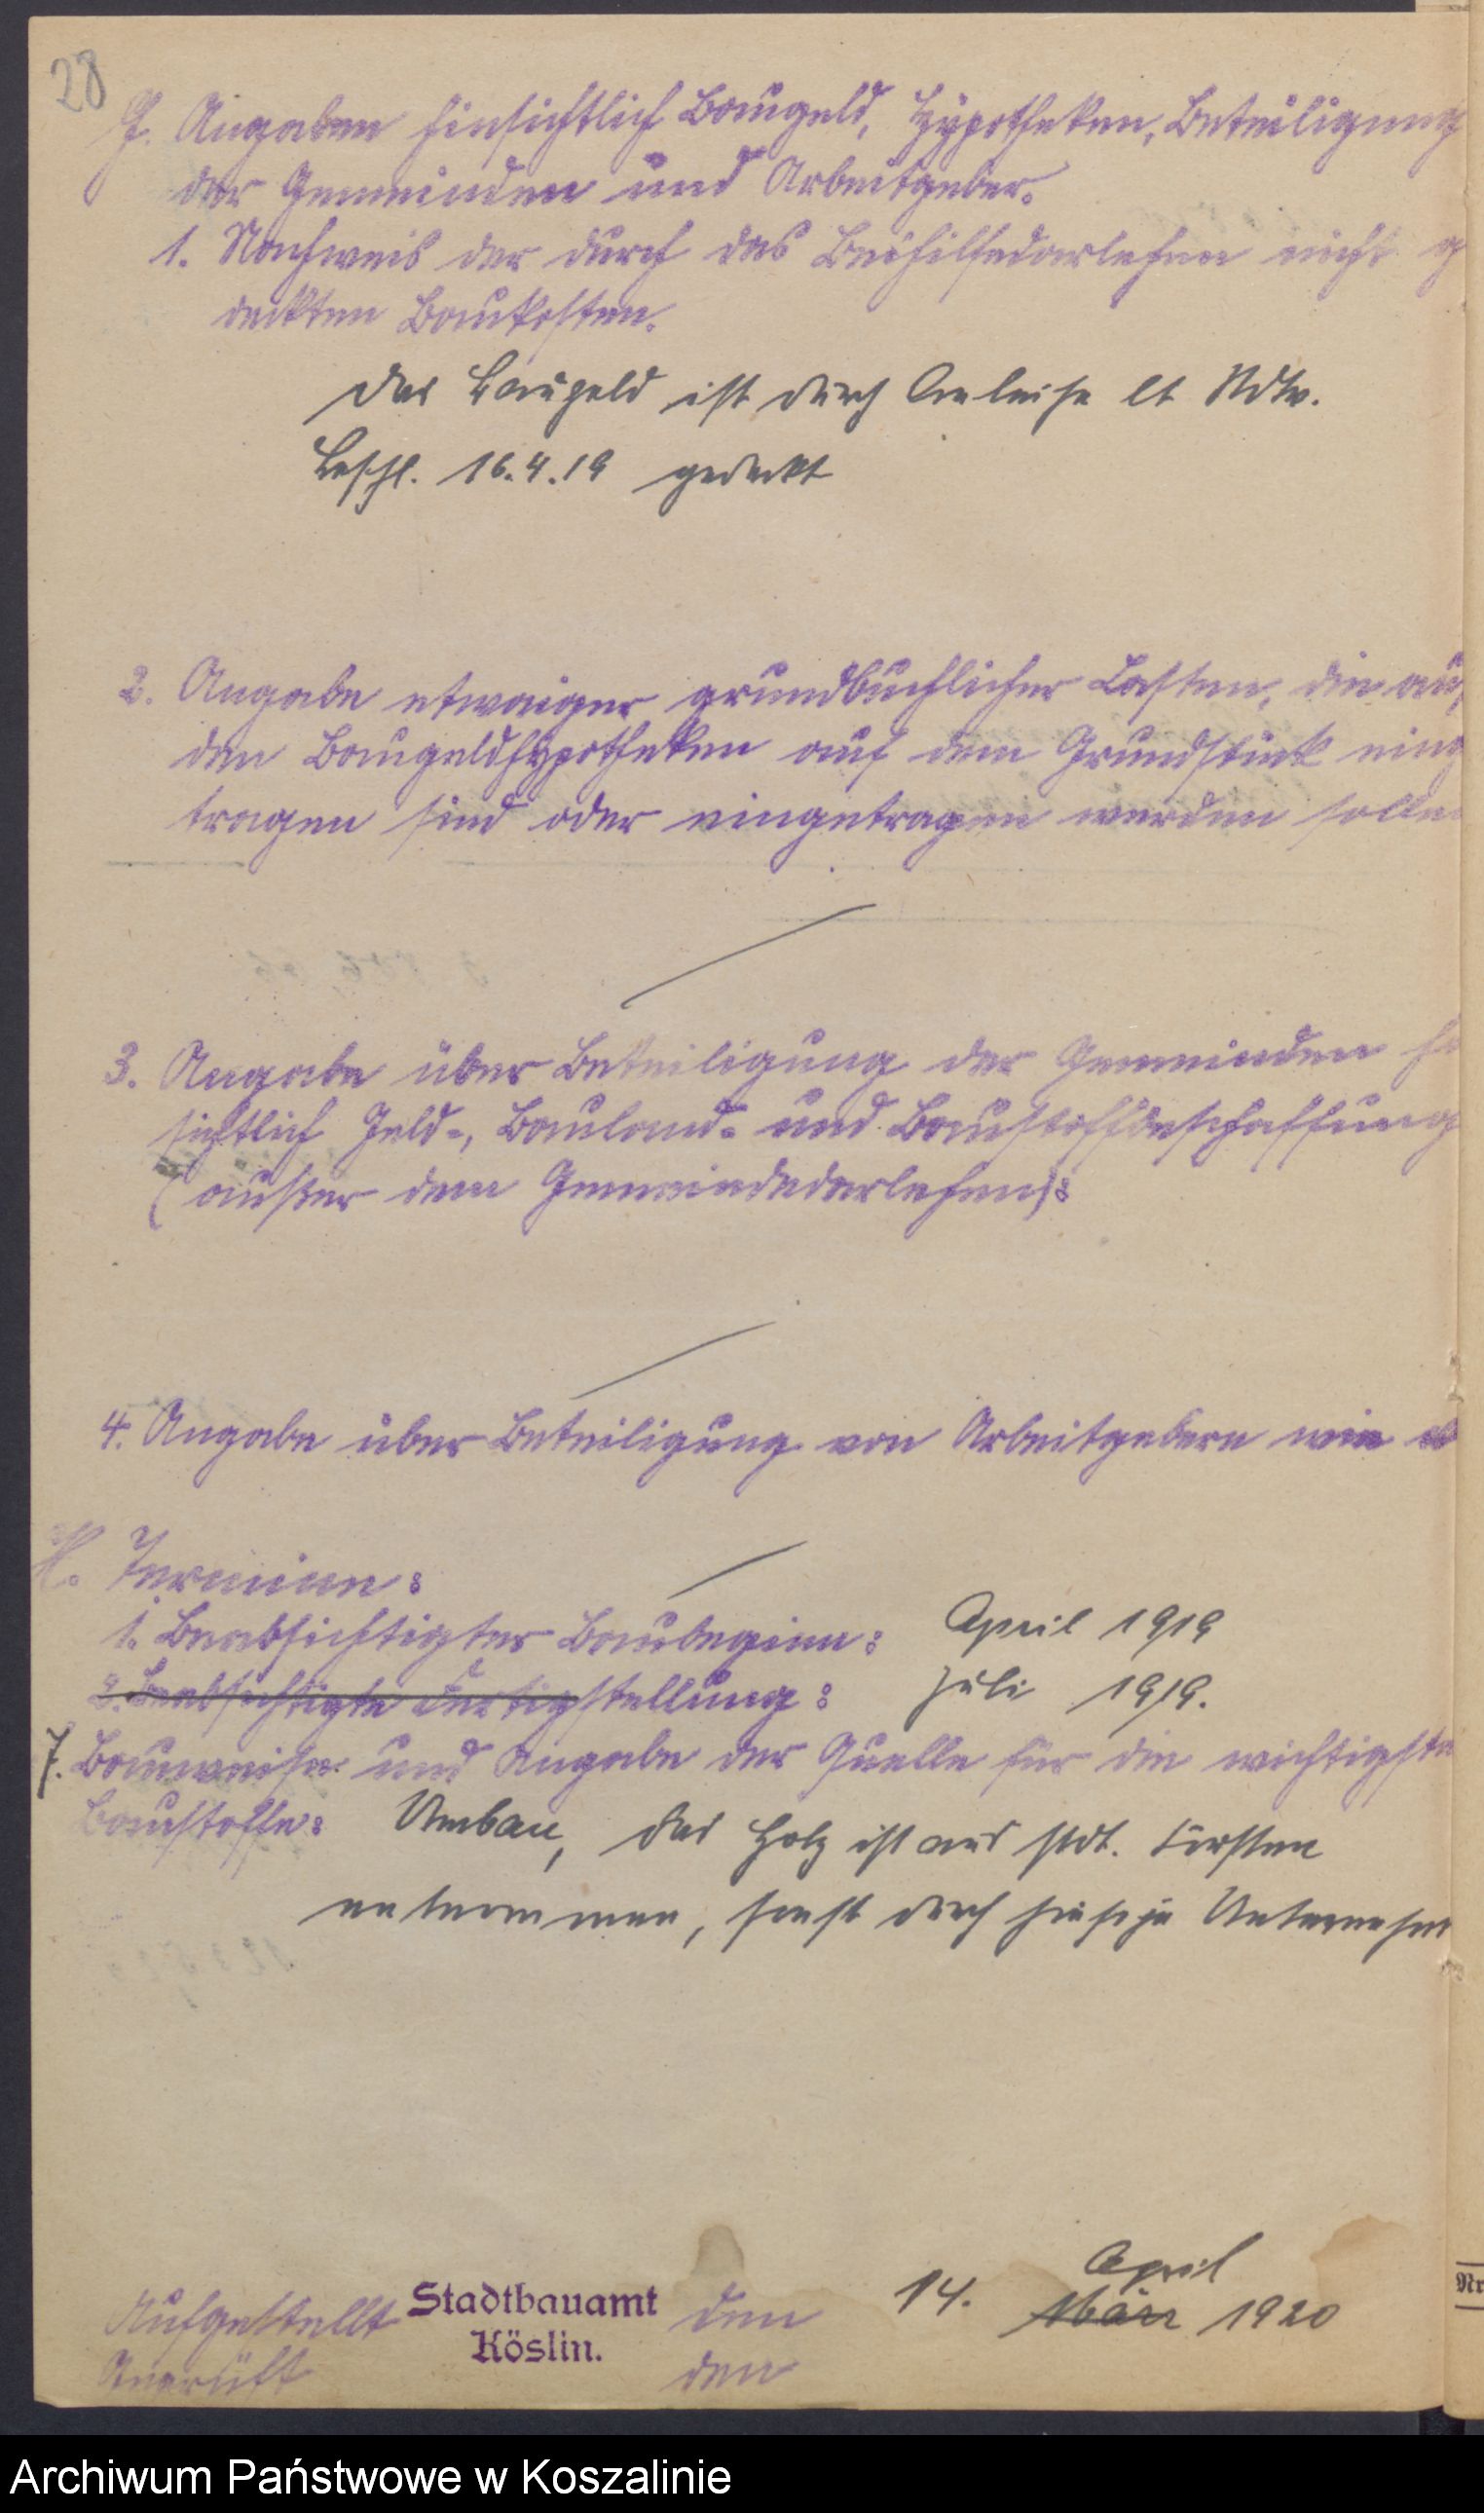 28
G. Angaben hinsichtlich Baugeld, Hypotheken, Beteiligung
der Gemeinden und Arbeitgeber.
1. Nachweis der durch das Beihilfedarlehen nicht g
deckten Baukosten.
Das Baugeld ist durch Anleihe lt Stdtv.
Beschl. 16.4.19 gedeckt
2. Angabe etwaiger grundbuchlicher Lasten, die auß
den Baugeldhypotheken auf dem Grundstück einge
tragen sind oder eingetragen werden sollen
3. Angabe über Beteiligung der Gemeinden hi
sichtlich Geld-, Bauland- und Baustoffbeschaffung
(außer dem Gemeindedarlehen):
4. Angabe über Beteiligung von Arbeitgebern wie
H. Termine:
1. Beabsichtigter Baubeginn: April 1919
2. Beabsichtigte Fertigstellung: Juli 1919.
J. Bauweise und Angabe der Quelle für die wichtigste
Baustoffe: Umbau, das Holz ist aus städt. Forsten
entnommen, sonst durch hiesige Unternehm
Aufgestellt Stadtbauamt den 14. April
Köslin. März 1920
Geprüft den
Nr
Archiwum Państwowe w Koszalinie